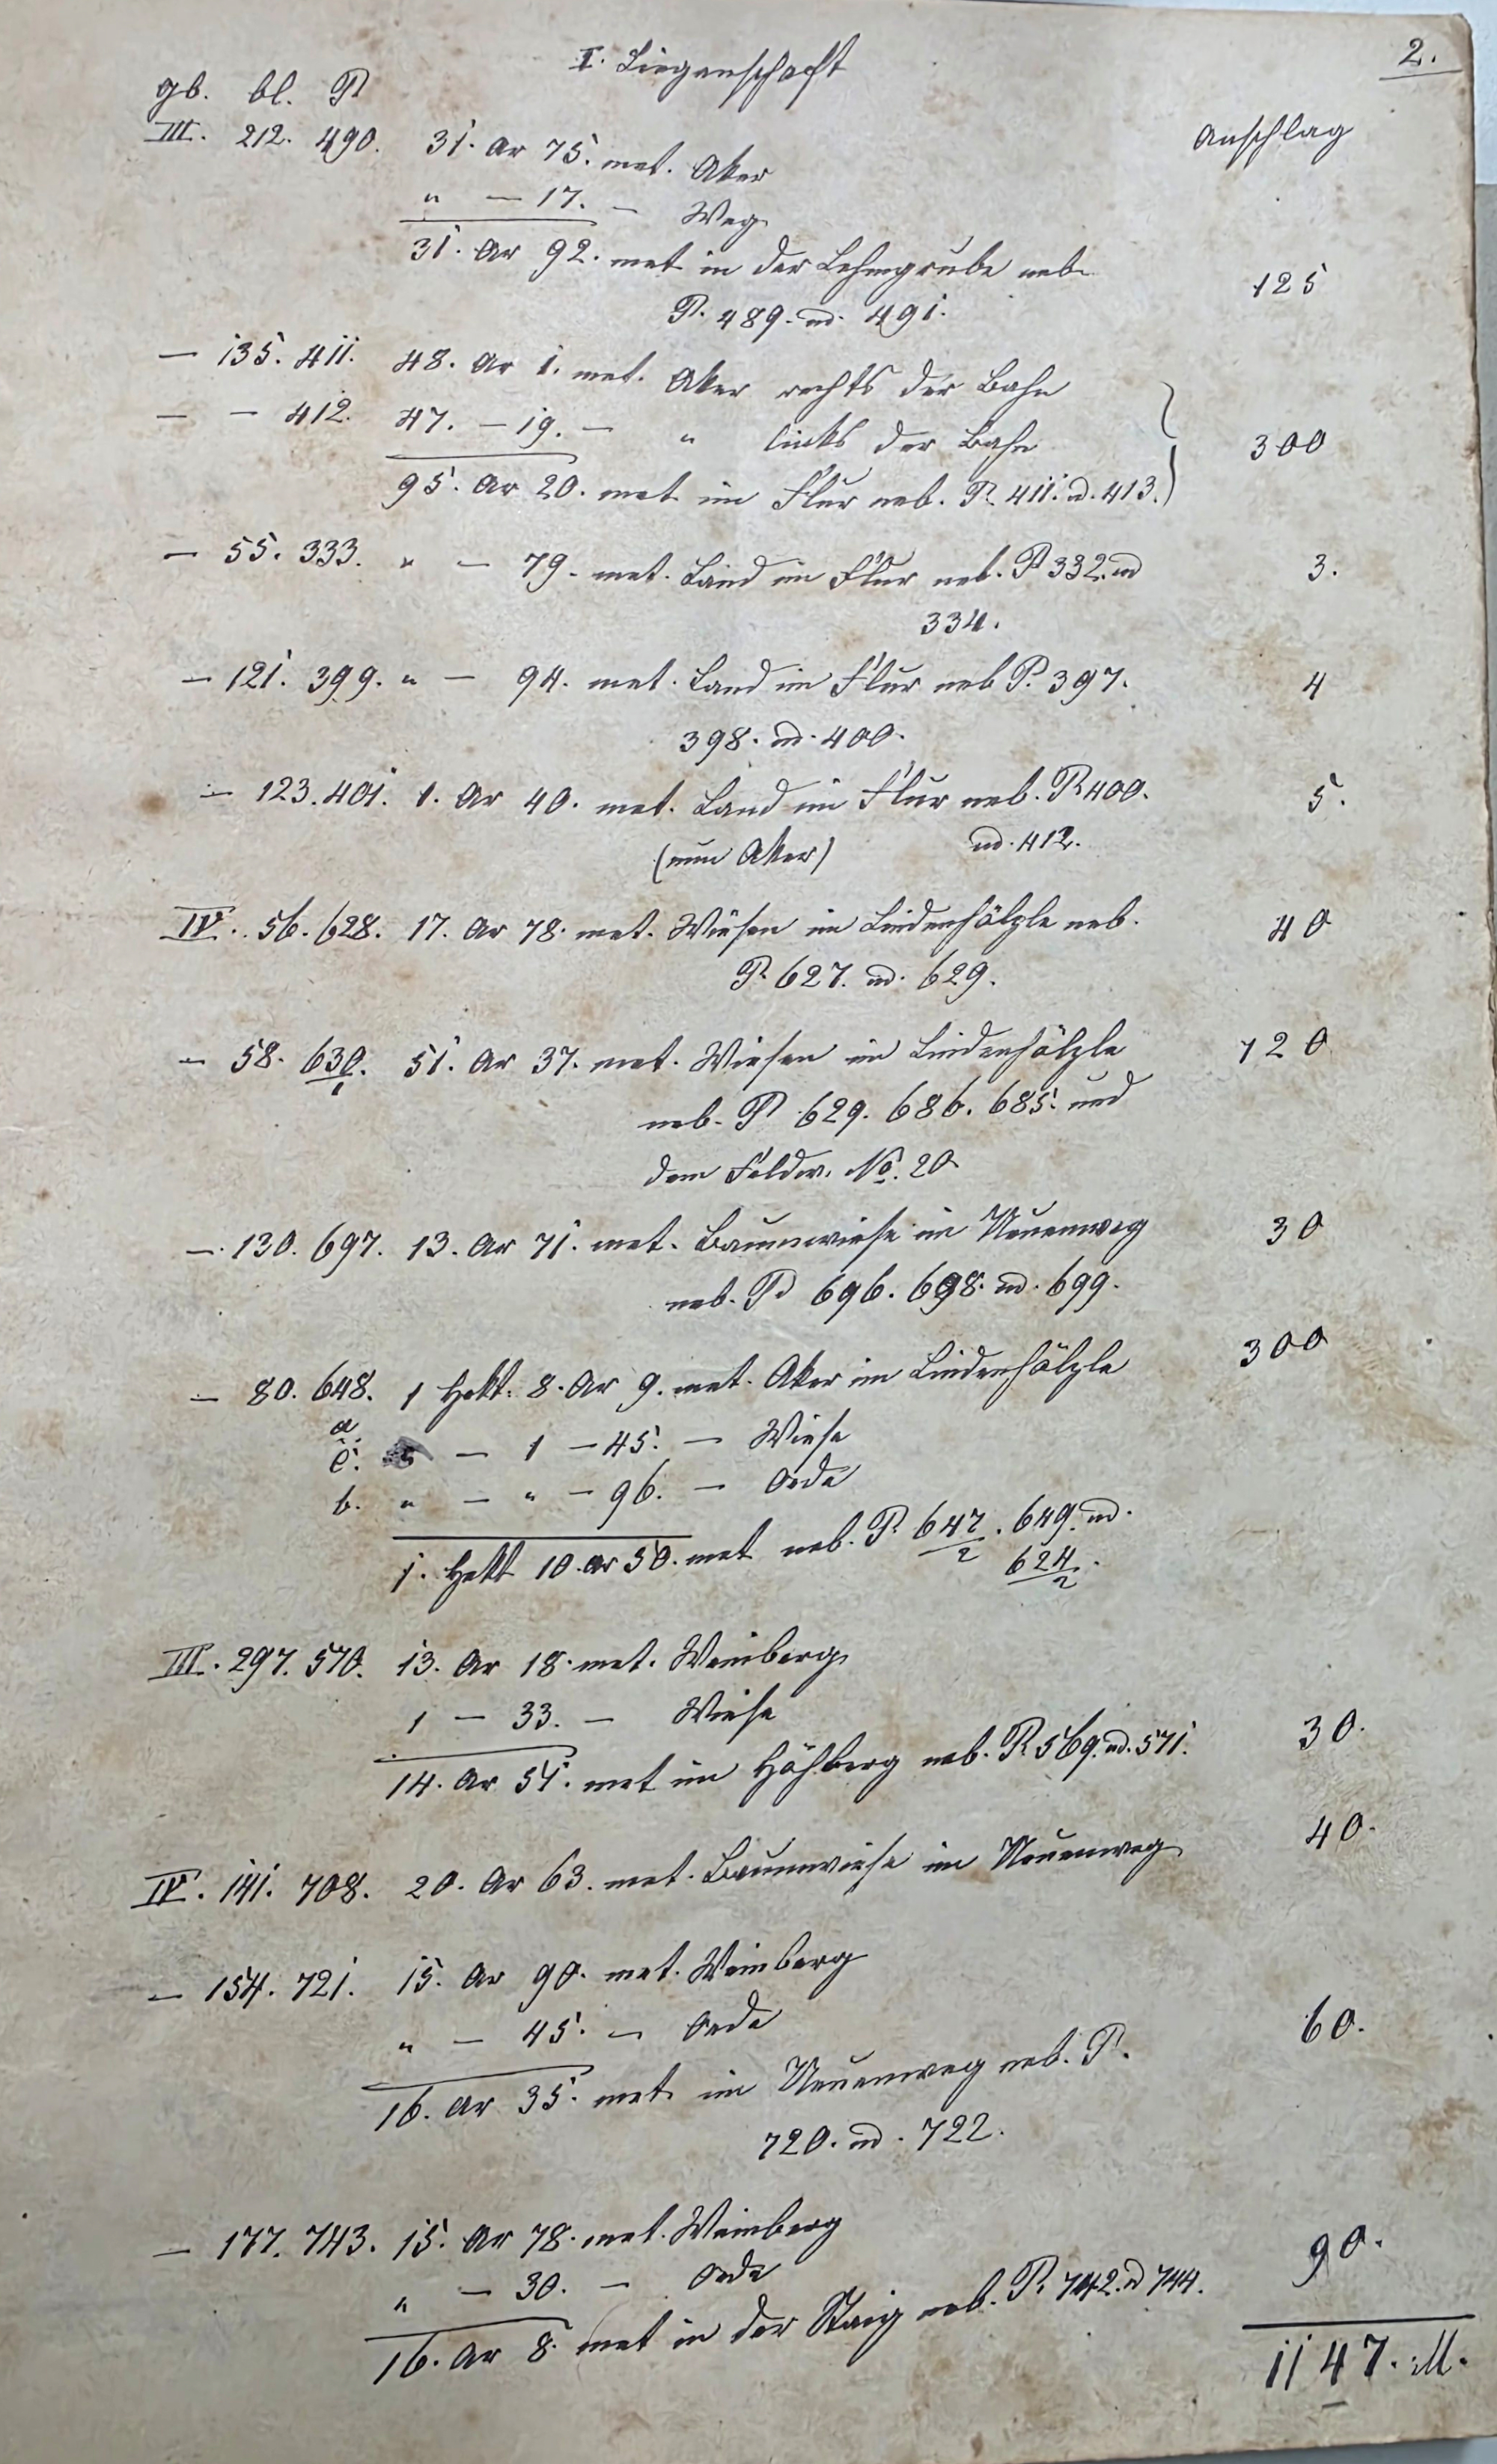 2.
I. Liegenschaft
gb. bl. P
Anschlag
III. 212. 490. 31. Ar 75. met. Aker
" — 17. — Weg
31. Ar 92. met in der Lehmgrube neb.
P. 489. nd. 491. 125
— 135. 411. 48. Ar 1. met. Aker rechts der Bahn
— — 412. 47. — 19. — " links der Bahn
95. Ar 20. met im Flur neb. P. 411. nd. 413. 300
— 55. 333. " — 79. met. Länd im Flur neb. P 332. nd 3.
334.
— 121. 399. " — 94. met. Land im Flur neb P. 397. 4
398. nd. 400.
— 123. 401. 1. Ar 40. met. Land im Flur neb. P. 400. 5.
(nun Aker) nd. 412.
IV. 56. 628. 17. Ar 78. met. Wiesen im Lindenhölzle neb. 40
P. 627. nd. 629.
— 58. 630/1. 51. Ar 37. met. Wiesen im Lindenhölzle 120
neb. P 629. 686. 685. und
dem Feldw. No. 20
— 130. 697. 13. Ar 71. met. Baumwiese im Neuenweg 30
neb. P 696. 698. nd. 699.
— 80. 648. 1 Hekt. 8. Ar 9. met. Aker im Lindenhölzle 300
a.
c. — 1 — 45. — Wiese
b. " — " — 96. — Oede
1. Hekt 10. Ar 50. met neb. P. 647/2. 649. nd.
624/2.
III. 297. 570. 13. Ar 18. met. Weinberg
1 — 33. — Wiese
14. Ar 51. met im Höhberg neb. P. 569. nd. 571. 30.
IV. 141. 708. 20. Ar 63. met. Baumwiese im Neuenweg 40.
— 154. 721. 15. Ar 90. met. Weinberg
" — 45. — Oede 60.
16. Ar 35. met im Neuenweg neb. P.
720. nd. 722.
— 177. 743. 15. Ar 78. met. Weinberg
" — 30. — Oede 90.
16. Ar 8. met in der Staig neb. P. 742. d 744.
1147. M.